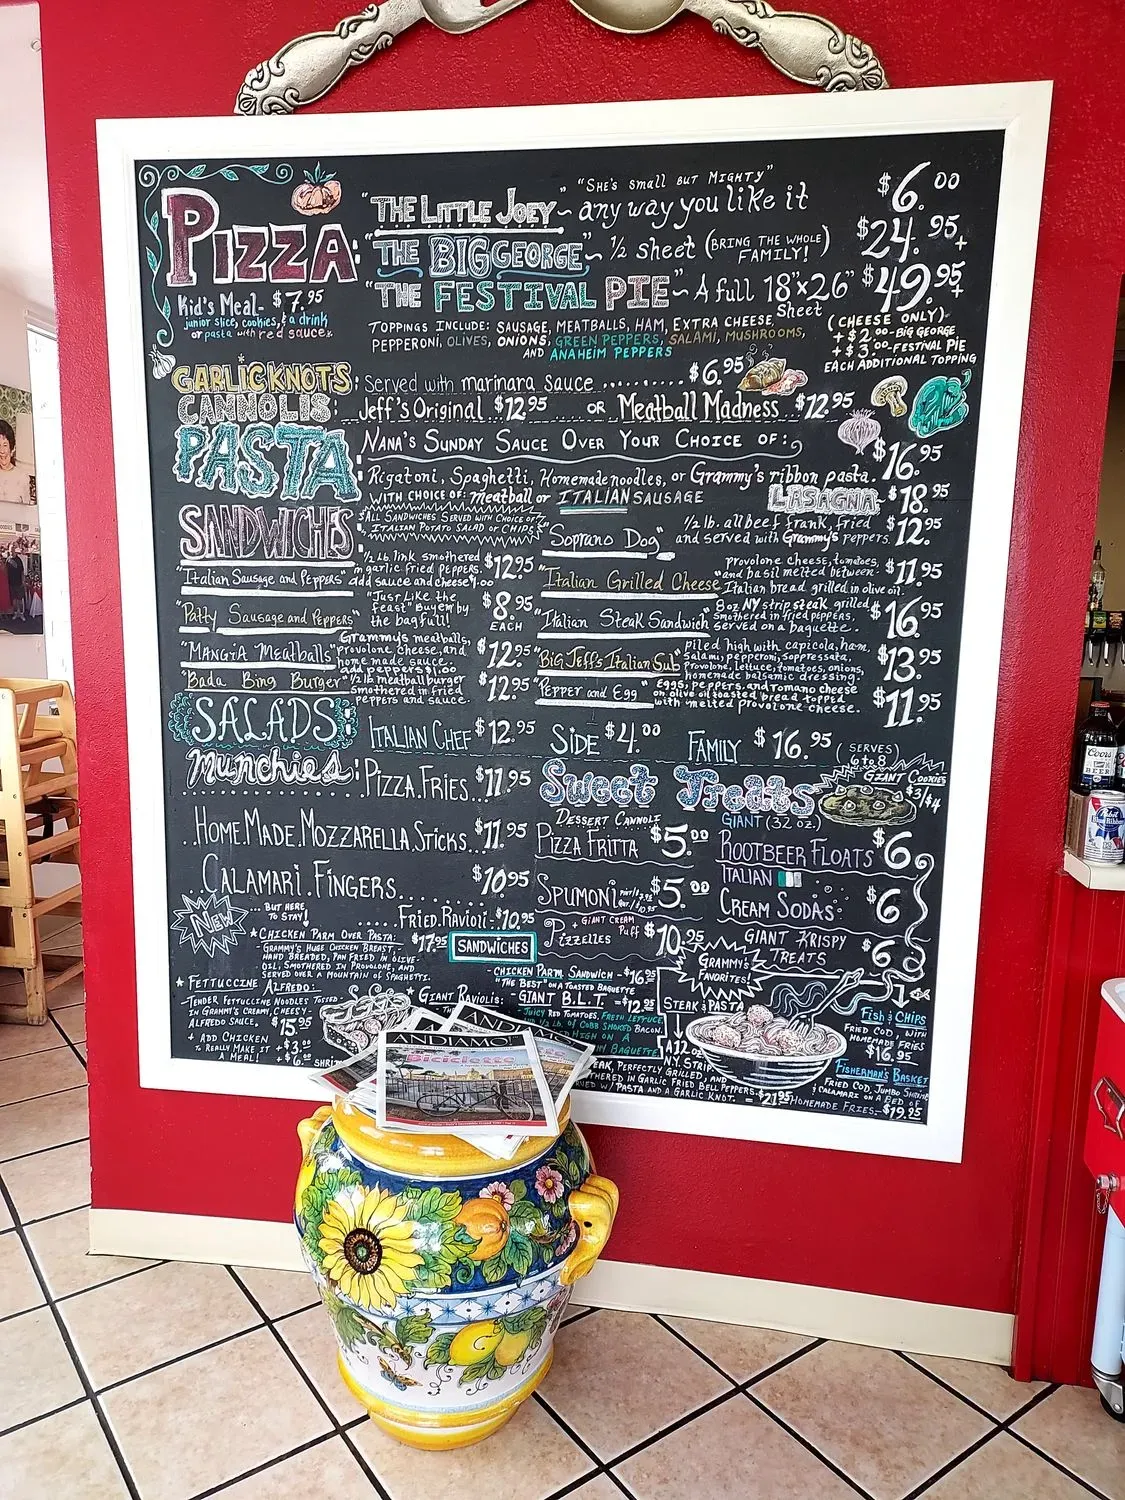 PIZZA:
"THE LITTLE JOEY" ~ "SHE'S SMALL BUT MIGHTY" any way you like it $6.00
"THE BIG GEORGE" ~ 1/2 sheet (BRING THE WHOLE FAMILY!) $24.95+
"THE FESTIVAL PIE" ~ A full 18"x26" Sheet $49.95+
(CHEESE ONLY)
+ $2.00 - BIG GEORGE
+ $3.00 - FESTIVAL PIE
EACH ADDITIONAL TOPPING
Kid's Meal - $7.95
junior slice, cookies, & a drink
or pasta with red sauce.
TOPPINGS INCLUDE: SAUSAGE, MEATBALLS, HAM, EXTRA CHEESE,
PEPPERONI, OLIVES, ONIONS, GREEN PEPPERS, SALAMI, MUSHROOMS,
AND ANAHEIM PEPPERS
GARLIC KNOTS: Served with marinara sauce ........ $6.95
CANNOLIS: Jeff's Original $12.95 OR Meatball Madness $12.95
PASTA: NANA'S SUNDAY SAUCE OVER YOUR CHOICE OF:
Rigatoni, Spaghetti, Homemade noodles, or Grammy's ribbon pasta. $16.95
WITH CHOICE OF: meatball or ITALIAN SAUSAGE
LASAGNA: $18.95
SANDWICHES:
ALL SANDWICHES SERVED WITH CHOICE OF
ITALIAN POTATO SALAD OR CHIPS
"Italian Sausage and Peppers" 1/2 lb. link smothered
in garlic fried peppers.
add sauce and cheese $1.00 $12.95
"Patty Sausage and Peppers" "Just Like the
feast" Buy em by
the bag full! $8.95 EACH
"MANGIA Meatballs" Grammy's meatballs,
provolone cheese, and
home made sauce.
add peppers $1.00 $12.95
"Bada Bing Burger" 1/2 lb meatball burger
smothered in fried
peppers and sauce. $12.95
"Soprano Dog" 1/2 lb. all beef frank, fried
and served with Grammy's peppers. $12.95
"Italian Grilled Cheese" provolone cheese, tomatoes,
and basil melted between
Italian bread grilled in olive oil. $11.95
"Italian Steak Sandwich" 8 oz NY strip steak grilled,
smothered in fried peppers,
served on a baguette. $16.95
"Big Jeff's Italian Sub" piled high with capicola, ham,
Salami, pepperoni, soppressata,
Provolone, lettuce, tomatoes, onions,
homemade balsamic dressing. $13.95
"Pepper and Egg" EGGS, peppers, and romano cheese
on olive oil toasted bread topped
with melted provolone cheese. $11.95
SALADS: ITALIAN CHEF $12.95 SIDE $4.00 FAMILY $16.95 (SERVES 6 to 8)
munchies: PIZZA FRIES $11.95
HOME MADE MOZZARELLA STICKS $11.95
CALAMARI FINGERS $10.95
FRIED RAVIOLI $10.95
Sweet Treats
GIANT COOKIES $3/$4
DESSERT CANNOLI
PIZZA FRITTA $5.00
SPUMONI $5.00
GIANT CREAM PUFF
PIZZELLES $10.95
GIANT (32 OZ.)
ROOTBEER FLOATS $6
ITALIAN
CREAM SODAS $6
GIANT KRISPY
TREATS $6
NEW
... BUT HERE
TO STAY!
★ CHICKEN PARM OVER PASTA: $17.95
GRAMMY'S HUGE CHICKEN BREAST,
HAND BREADED, PAN FRIED IN OLIVE
OIL, SMOTHERED IN PROVOLONE, AND
SERVED OVER A MOUNTAIN OF SPAGHETTI.
★ FETTUCCINE ALFREDO:
- TENDER FETTUCCINE NOODLES TOSSED
IN GRAMMY'S CREAMY, CHEESY
ALFREDO SAUCE. $15.95
+ ADD CHICKEN $3.00
TO REALLY MAKE IT
A MEAL!
+ $6.00
★ GIANT RAVIOLIS:
SANDWICHES
- CHICKEN PARM SANDWICH - $16.95
"THE BEST" ON A TOASTED BAGUETTE
GIANT B.L.T. = $12.95
- JUICY RED TOMATOES, FRESH LETTUCE,
AND 1/2 LB. OF COBB SMOKED BACON,
HIGH ON A
BAGUETTE
GRAMMY'S
FAVORITES!
STEAK & PASTA
A 12 oz
N.Y. STRIP
STEAK, PERFECTLY GRILLED, AND
SMOTHERED IN GARLIC FRIED BELL PEPPERS.
SERVED W/ PASTA AND A GARLIC KNOT. = $21.95
FISH & CHIPS
FRIED COD, WITH
HOMEMADE FRIES
$16.95
FISHERMAN'S BASKET
FRIED COD, JUMBO SHRIMP
& CALAMARI ON A BED OF
HOMEMADE FRIES - $19.95
ANDIAMO!
Biciclette
Coors